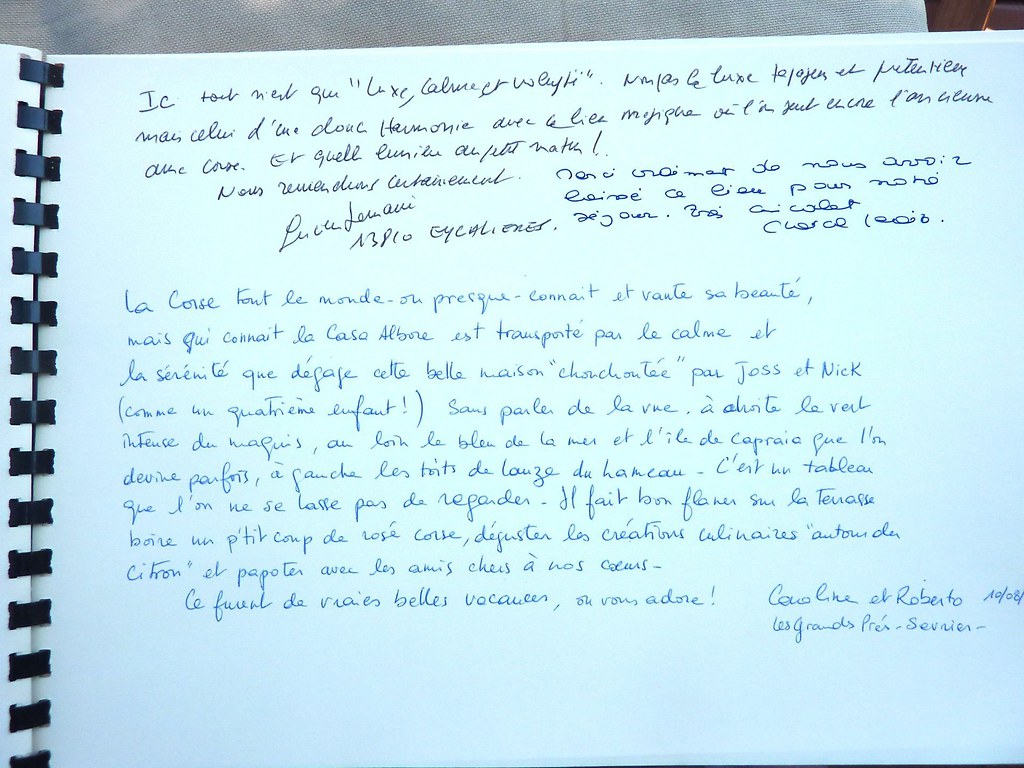 Ic tout n'est que "Luxe, Calme et volupté". Non pas le luxe tapageur et prétentieux
mais celui d'une douce Harmonie avec ce lieu magique où l'on sent encore l'ancienne
âme corse. Et quelle lumière au petit matin !
Nous reviendrons certainement.
13810 EYGALIERES.
merci vraiment de nous avoir
laissé ce lieu pour notre
séjour. Très
La Corse tout le monde - ou presque - connait et vante sa beauté,
mais qui connait la Casa Albore est transporté par le calme et
la sérénité que dégage cette belle maison "chouchoutée" par Joss et Nick
(comme un quatrième enfant !) Sans parler de la vue. à droite le vert
intense du maquis, au loin le bleu de la mer et l'île de Capraia que l'on
devine parfois, à gauche les toits de lauze du hameau - C'est un tableau
que l'on ne se lasse pas de regarder - Il fait bon flaner sur la terrasse
boire un p'tit coup de rosé corse, déguster les créations culinaires "autour du
citron" et papoter avec les amis chers à nos cœurs -
Ce furent de vraies belles vacances, on vous adore !
Caroline et Roberto 10/08/
Les Grands Prés - Sevrier -